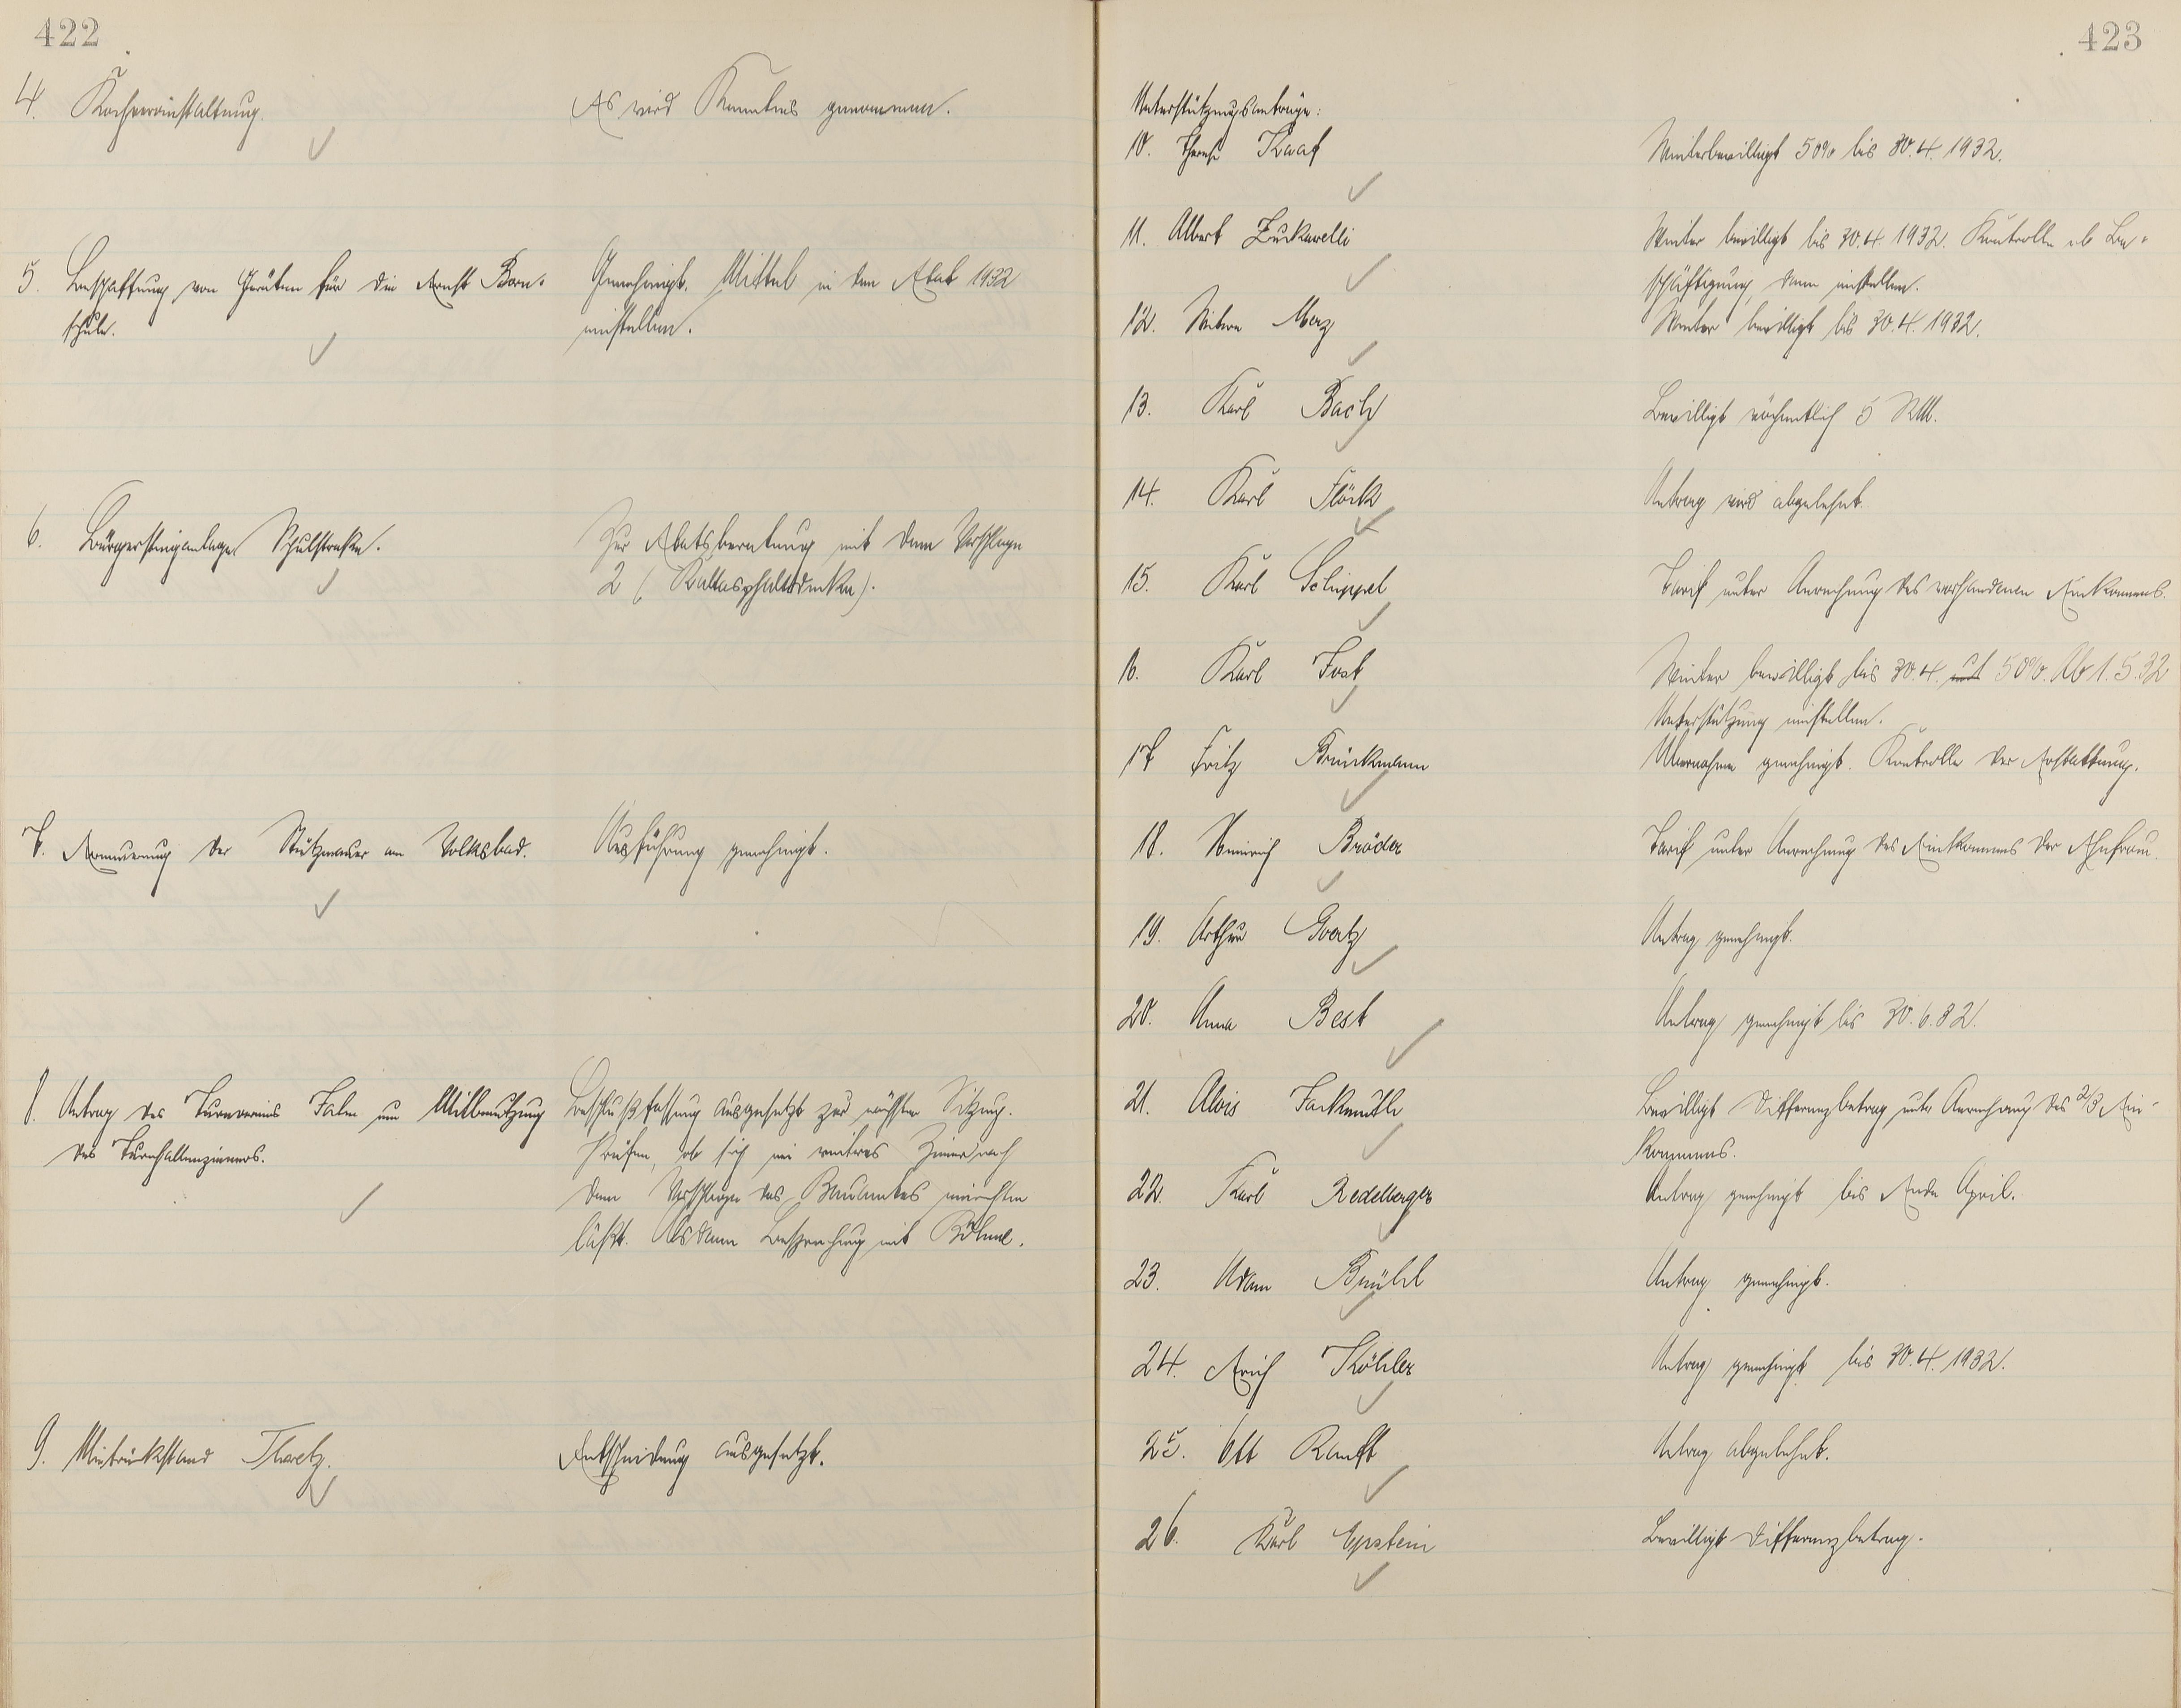 422
4. Kochveranstaltung.
Es wird Kenntnis genommen.
5. Beschaffung von Geräten für die Ernst Born-
schule.
Genehmigt. Mittel in den Etat 1932
einstellen.
6. Bürgersteiganlage Schulstraße.
Zur Etatsberatung mit dem Vorschlage
2 (Kaltasphaltdecke).
7. Erneuerung der Stützmauer am Volksbad.
Ausführung genehmigt.
8. Antrag des Turnvereins Jahn um Mitbenutzung
des Turnhallenzimmers.
Beschlußfassung ausgesetzt zur nächsten Sitzung.
Prüfen, ob sich ein weiteres Zimmer nach
dem Vorschlage des Bauamtes einrichten
läßt. Alsdann Besprechung mit Böhme.
9. Mietrückstand
Entscheidung ausgesetzt.
423
Unterstützungsanträge:
10. Therese Kraaf
Weiterbewilligt 50% bis 30.4.1932.
11. Albert Zuckarelli
Weiter bewilligt bis 30.4.1932. Kontrolle ob Be-
schäftigung, dann einstellen.
12. Witwe Merz
Weiter bewilligt bis 30.4.1932.
13. Karl Bach
Bewilligt wöchentlich 5 RM.
14. Karl Flöck
Antrag wird abgelehnt.
15. Karl Schippel
Tarif unter Anrechnung des vorhandenen Einkommens.
16. Karl Jost
Weiter bewilligt bis 30.4. mit 50%. Ab 1.5.32
Unterstützung einstellen.
17 Fritz Brückmann
Übernahme genehmigt. Kontrolle der Erstattung.
18. Heinrich Bröder
Tarif unter Anrechnung des Einkommens der Ehefrau.
19. Arthur Goertz
Antrag genehmigt.
20. Anna Best
Antrag genehmigt bis 30.6.32.
21. Alois Fackmuth
Bewilligt Differenzbetrag unter Anrechnung des 2/3 Ein-
kommens.
22. Karl Redelberger
Antrag genehmigt bis Ende April.
23. Adam Brühl
Antrag genehmigt.
24. Erich Köhler
Antrag genehmigt bis 30.4.1932.
25. Ott Ranft
Antrag abgelehnt.
26. Karl Epstein
Bewilligt Differenzbetrag.